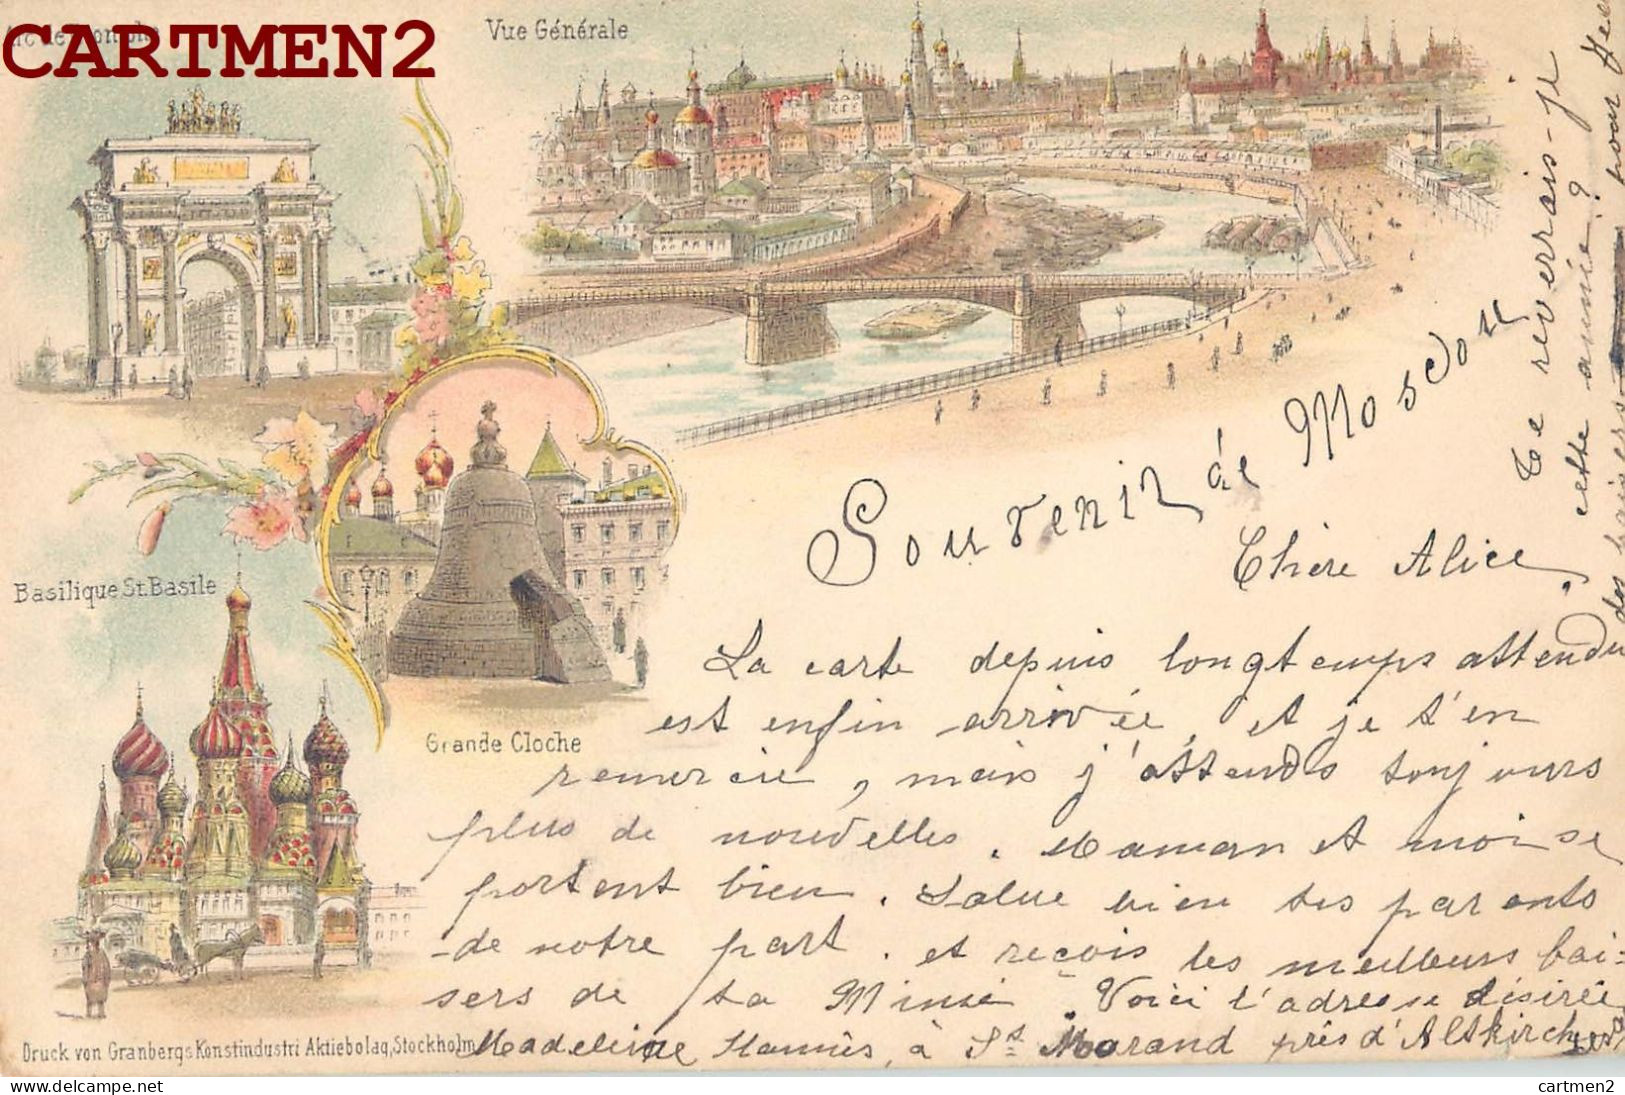 CARTMEN2
Arc de Triomphe
Vue Générale
Basilique St. Basile
Grande Cloche
Souvenir de Moscou
Chère Alice,
La carte depuis longtemps attendu
est enfin arrivée, et je t'en
remercie, mais j'attends toujours
plus de nouvelles. Maman et moi se
portent bien. Salue bien tes parents
de notre part. et reçois les meilleurs bai-
sers de ta Mimie Voici l'adresse désirée
Madeleine à St Morand près d'Altkirch
Te reverrais-je
cette année ?
des baisers
pour
Druck von Granbergs Konstindustri Aktiebolag, Stockholm
cartmen2